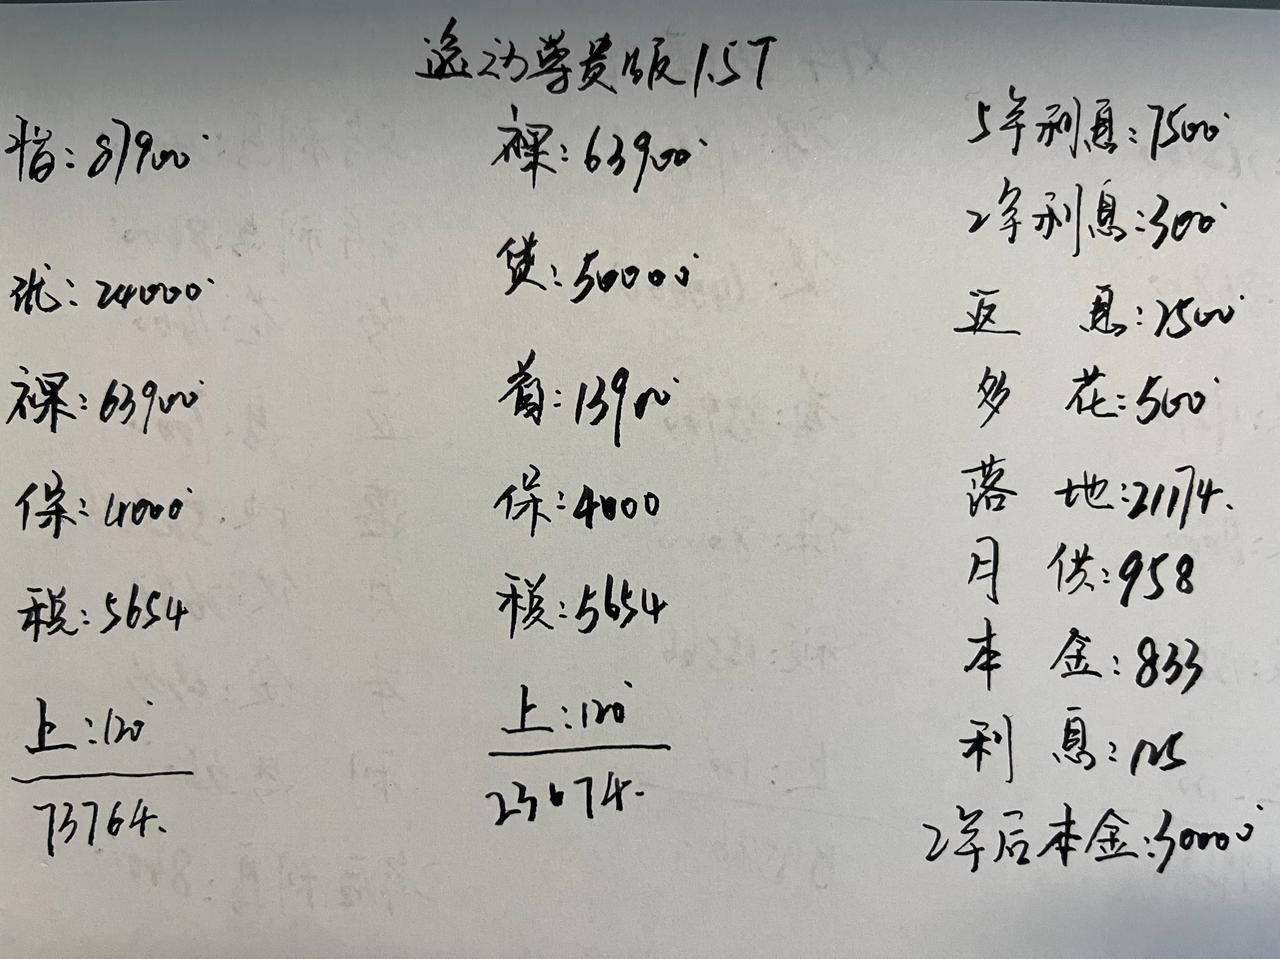 运动尊贵版1.5T
指:87900
优:24000
裸:63900
保:4000
税:5654
上:120
73764.
裸:63900
贷:50000
首:13900
保:4000
税:5654
上:120
23674.
5年利息:7500
2年利息:3000
返 息:2500
多 花:500
落 地:21174.
月 供:958
本 金:833
利 息:125
2年后本金:30000